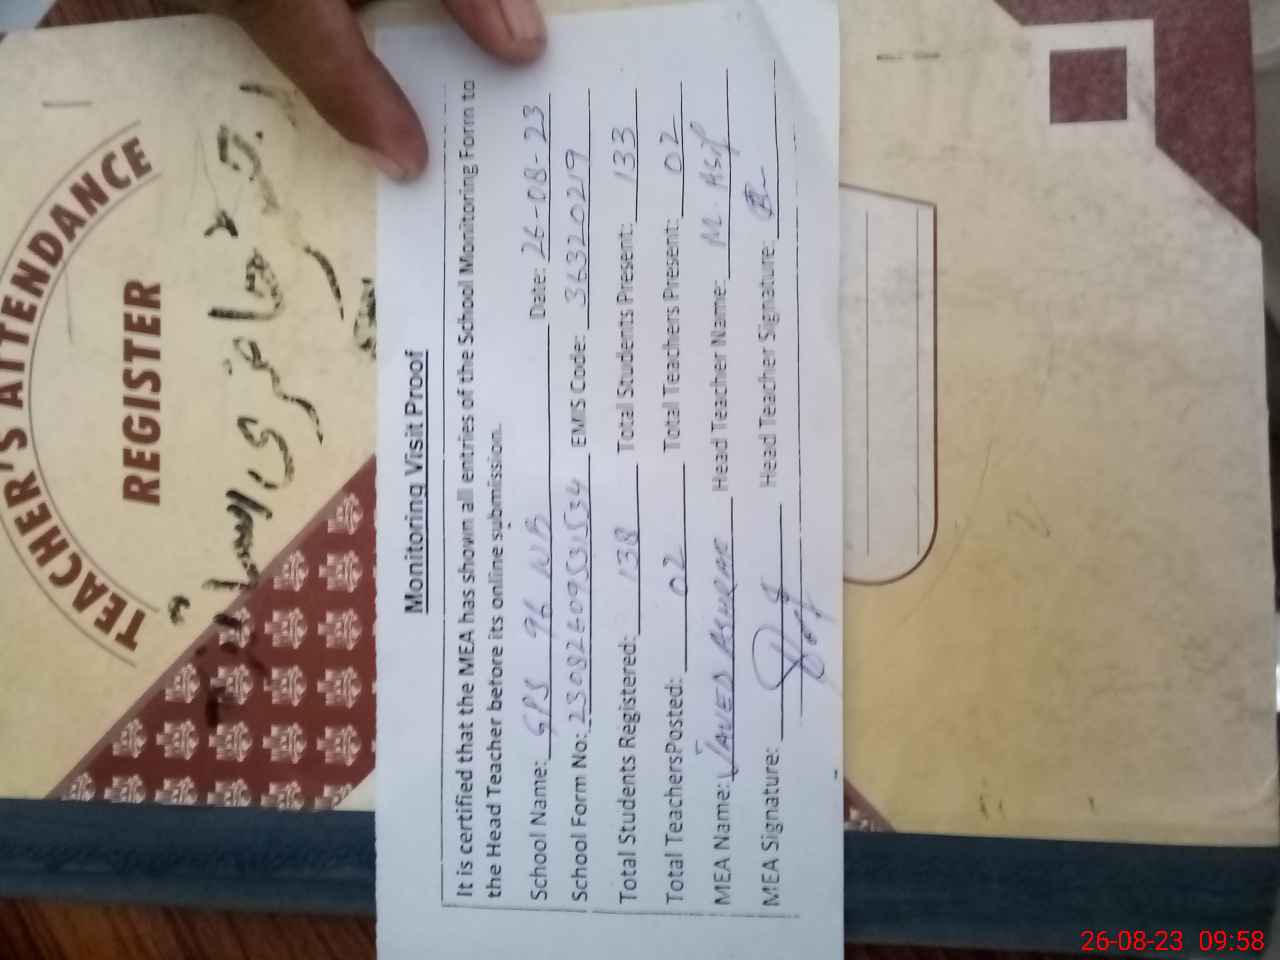 TEACHER'S ATTENDANCE
REGISTER
Monitoring Visit Proof
It is certified that the MEA has shown all entries of the School Monitoring Form to
the Head Teacher before its online submission.
School Name: GPS 96 NB Date: 26-08-23
School Form No: EMIS Code: 36320219
Total Students Registered: 138 Total Students Present: 133
Total TeachersPosted: 02 Total Teachers Present: 02
MEA Name: JAVED ASHRAF Head Teacher Name: M. Asif
MEA Signature: Head Teacher Signature:
26-08-23 09:58